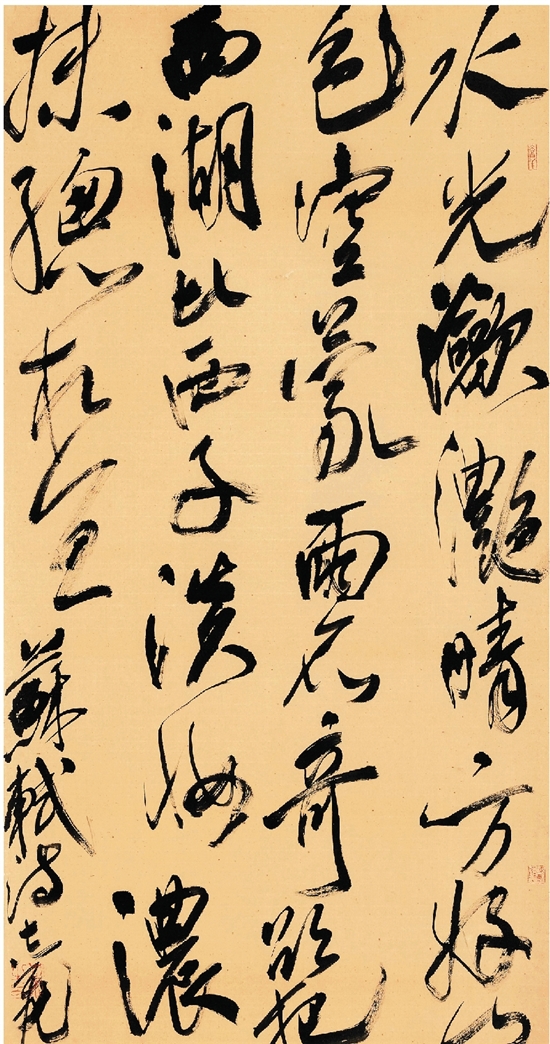 水光瀲灧晴方好山
色涳濛雨亦奇欲把
西湖比西子淡妝濃
抹總相宜 蘇軾詩